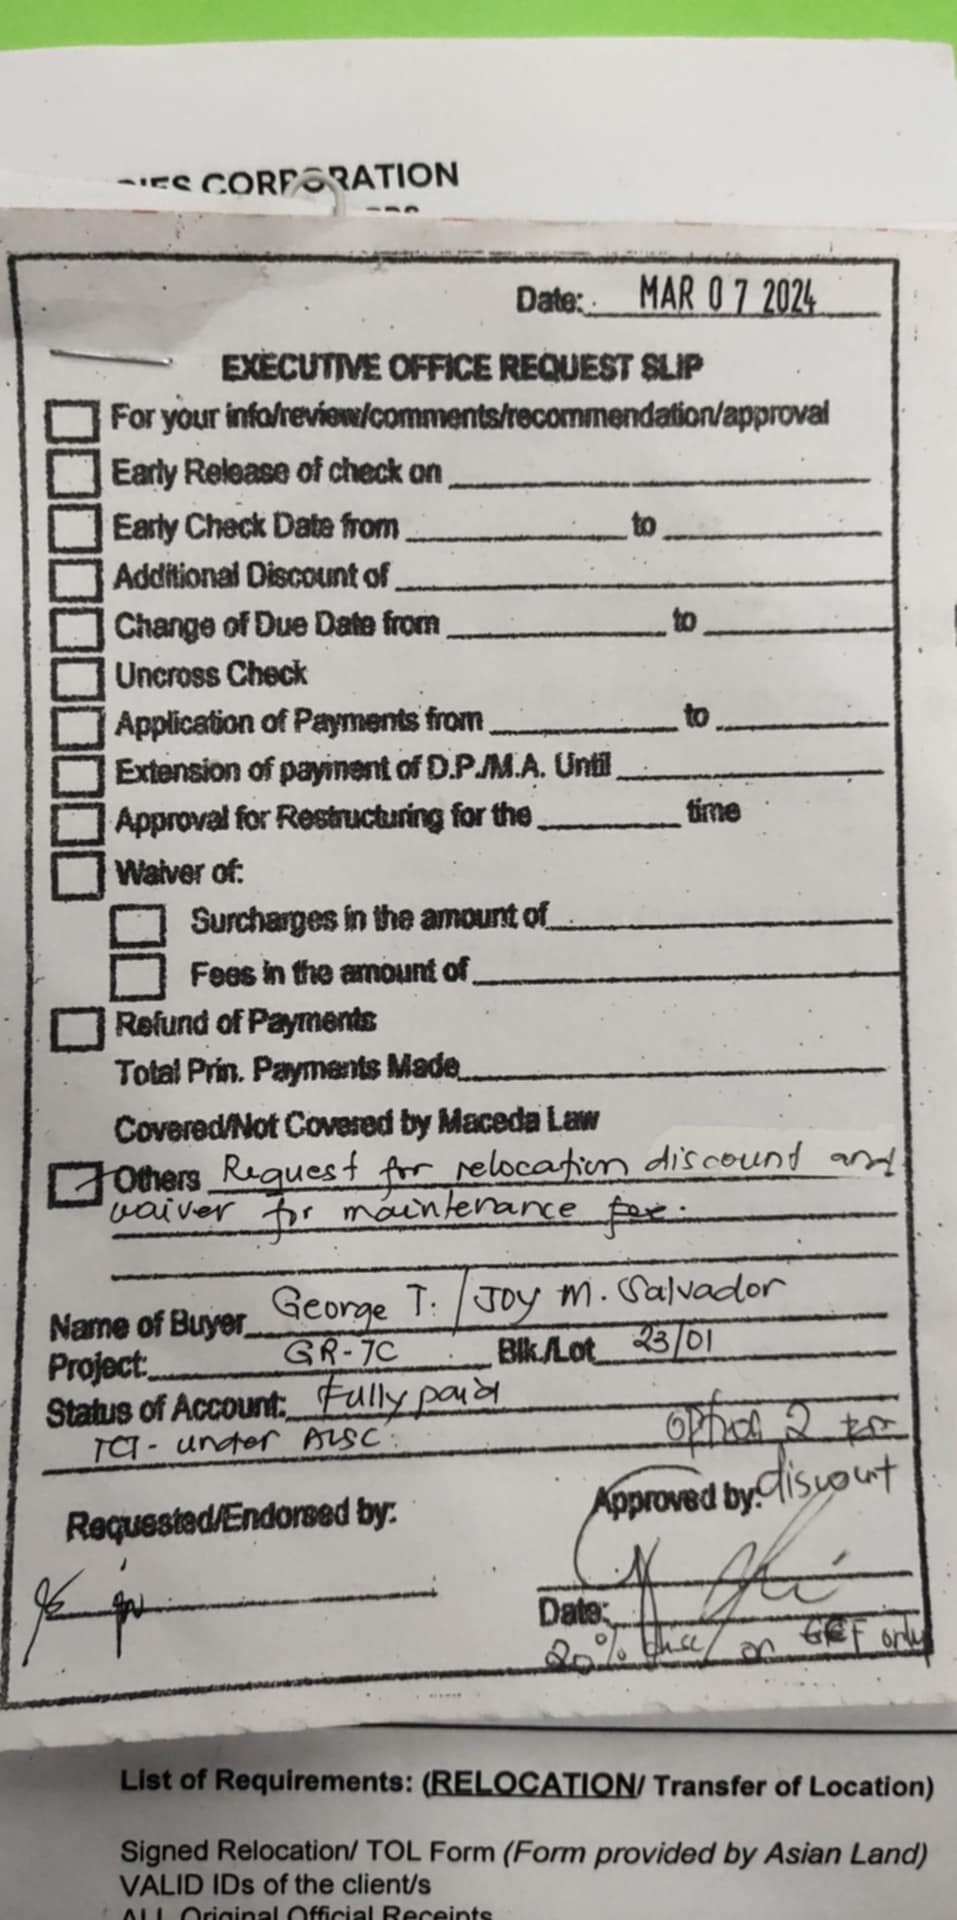 CORPORATION
Date: MAR 07 2024
EXECUTIVE OFFICE REQUEST SLIP
For your info/review/comments/recommendation/approval
Early Release of check on
Early Check Date from to
Additional Discount of
Change of Due Date from to
Uncross Check
Application of Payments from to
Extension of payment of D.P./M.A. Until
Approval for Restructuring for the time
Waiver of:
Surcharges in the amount of
Fees in the amount of
Refund of Payments
Total Prin. Payments Made
Covered/Not Covered by Maceda Law
Others Request for relocation discount and
waiver for maintenance fee.
Name of Buyer George T. / Joy M. Salvador
Project: GR-7C Blk./Lot 23/01
Status of Account: Fully paid
TCT - under ALSC.
option 2
Requested/Endorsed by: Approved by: discount
Date:
20% disc on only
List of Requirements: (RELOCATION/ Transfer of Location)
Signed Relocation/ TOL Form (Form provided by Asian Land)
VALID IDs of the client/s
ALL Original Official Receipts